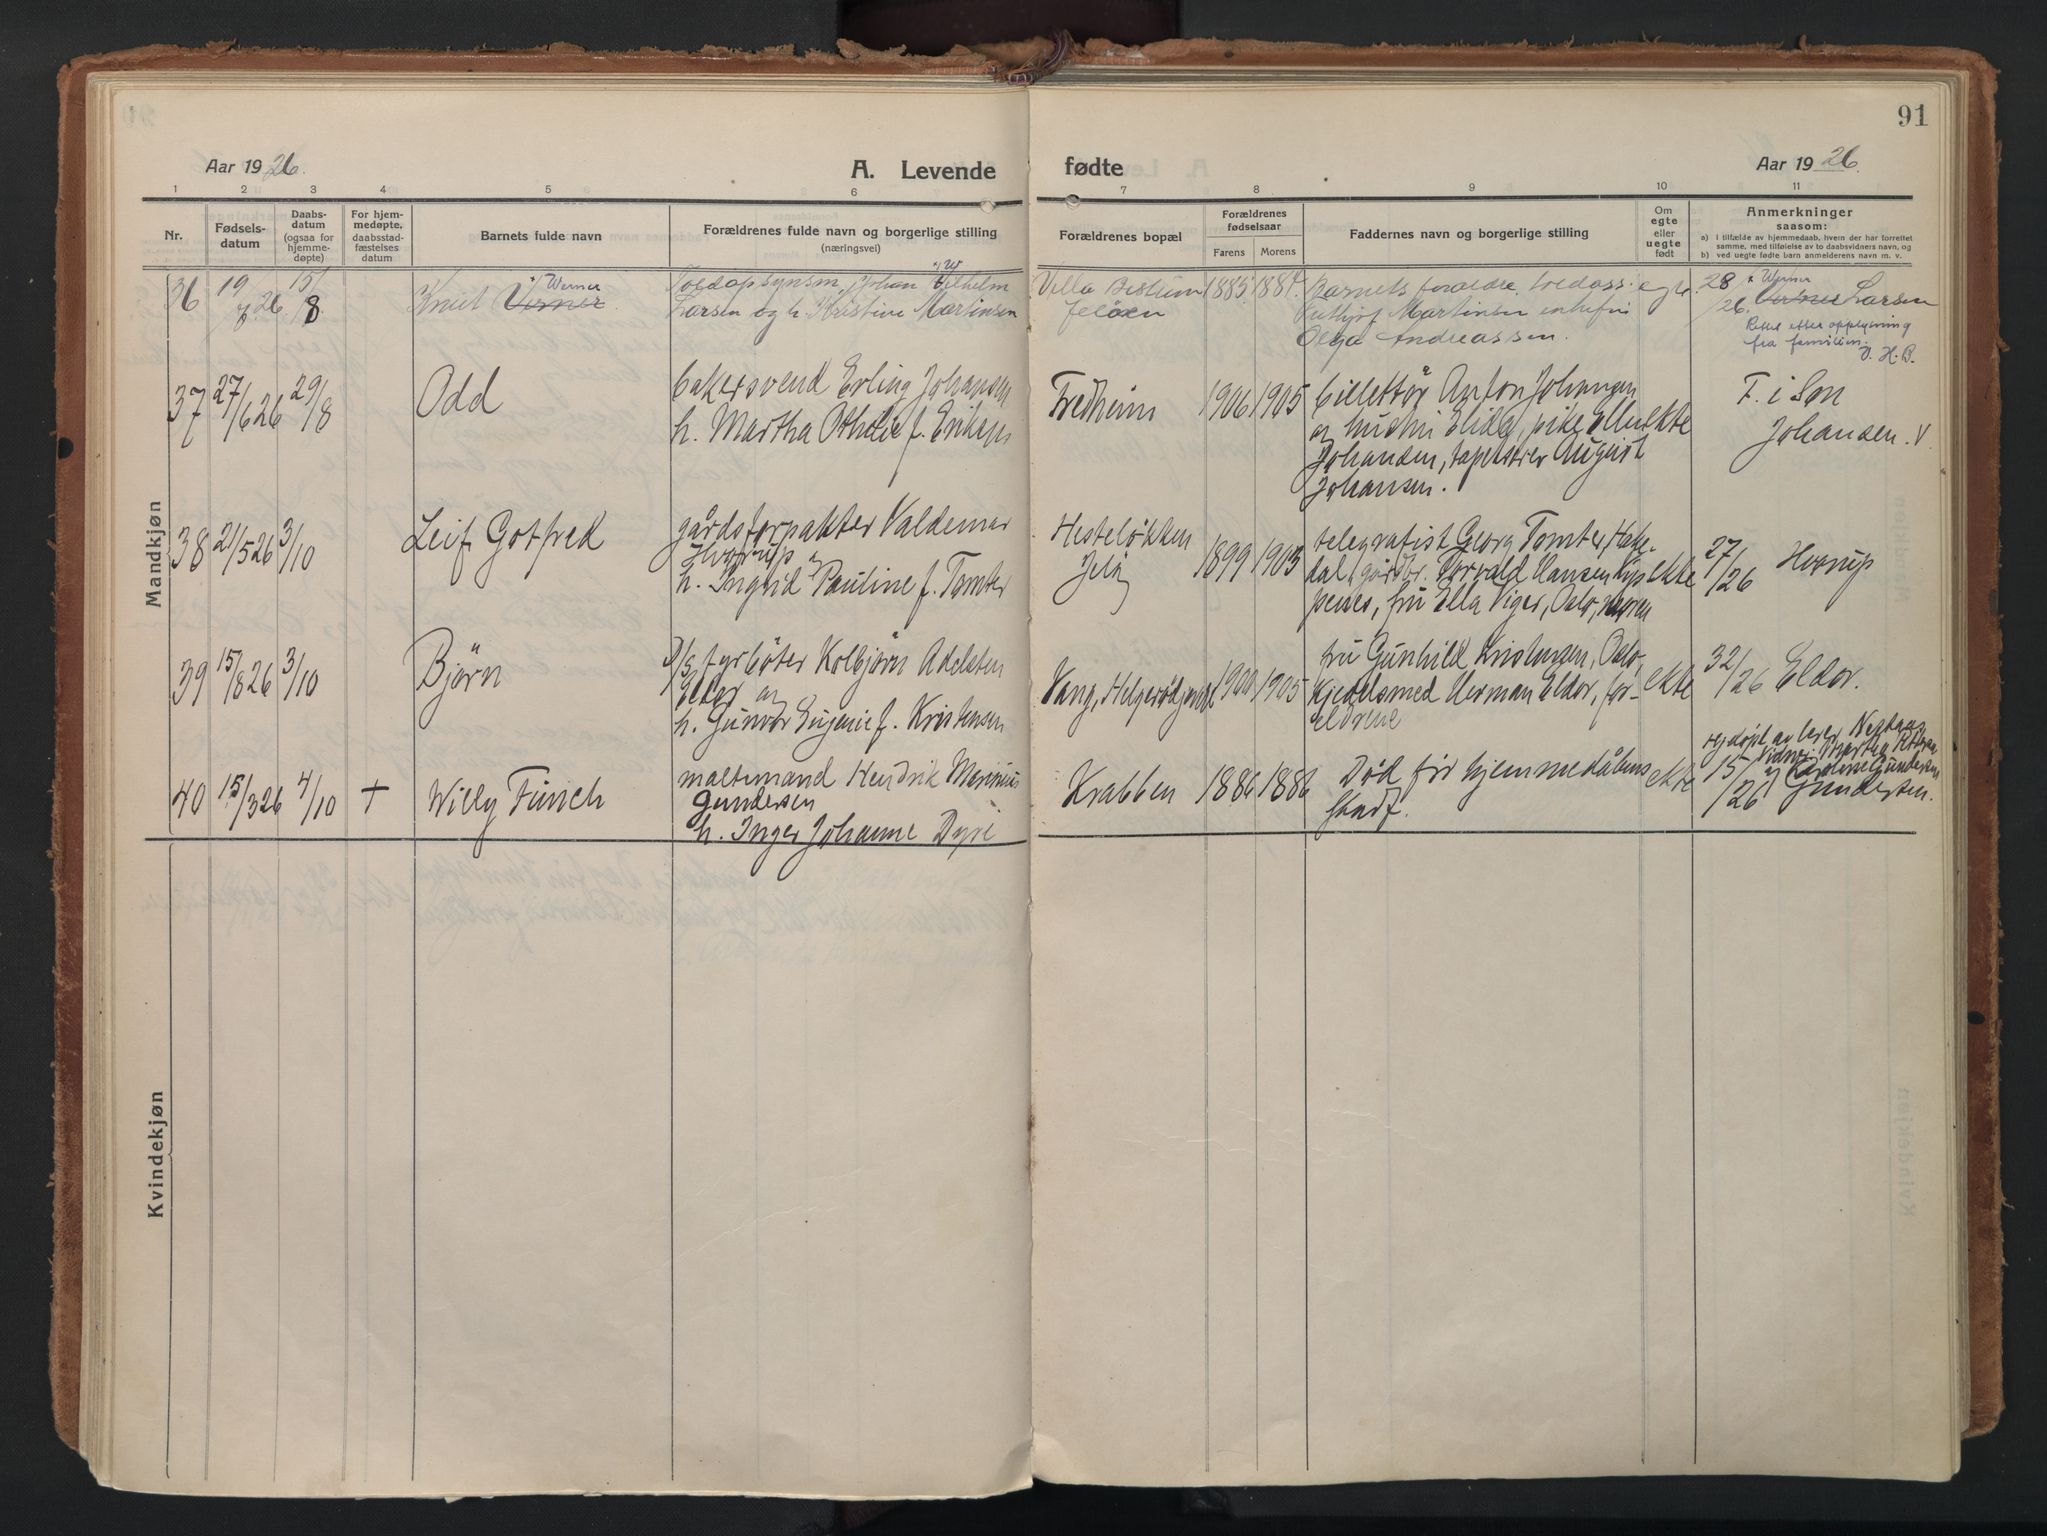 91
Aar 1926.
A. Levende
fødte
Aar 1926.
1 2 3 4 5 6 7 8 9 10 11
Nr.
Fødsels-
datum
Daabs-
datum
(ogsaa for
hjemme-
døpte)
For hjem-
medøpte,
daabsstad-
fæstelses
datum
Barnets fulde navn
Forældrenes fulde navn og borgerlige stilling
(næringsvei)
Forældrenes bopæl
Forældrenes
fødselsaar
Farens Morens
Faddernes navn og borgerlige stilling
Om
egte
eller
uegte
født
Anmerkninger
saasom:
a) i tilfælde av hjemmedaab, hvem der har forrettet
samme, med tilføielse av to daabsvidners navn, og
b) ved uegte fødte barn anmelderens navn m. v.
Mandkjøn
36
19/8 26
15/8
Werner
Knut Verner
W
Toldopsynsm. Johan Vilhelm
Larsen og h. Kristine Martinsen
Villa
Jeløen
1885 1884
Barnets foreldre, toldass.
Martinsen enkefru
Olga Andreassen.
egte
28/26.
Werner
Verner Larsen
Rettet efter opplysning
fra familien.
H. B.
37
27/6 26
29/8
Odd
bakersvend Erling Johansen
h. Martha Othelie f. Eriksen
Fredheim
1906 1905
billettør Anton Johansen
og hustru Elida, pike Ellen
Johansen, tapetserer August
Johansen.
ekte
F. i Son
Johansen. V
38
21/5 26
3/10
Leif Gotfred
gårdsforpakter Valdemar
Hvorup og
h. Ingrid Pauline f. Tomter
Hesteløkken
Jeløy
1899 1903
telegrafist Georg Tomter, Hake-
dal, gårdbr. Torvald Hansen Kip-
penes, fru Ella Viger, Oslo, moren
ekte
27/26
Hvorup
39
15/8 26
3/10
Bjørn
D/S fyrbøter Kolbjørn Adelsten
Eldor og
h. Gunvor Eugenie f. Kristensen
Vang, Helgerødgjerdet
1900 1905
fru Gunhild Kristensen, Oslo,
Kjedelsmed Herman Eldor, for-
eldrene
ekte
32/26
Eldor.
40
15/3 26
4/10
+
Willy Finch
maltmand Hendrik Marinius
Gundersen
h. Inger Johanne Dyre
Krabben
1886 1886
Død før hjemmedåbens
stadf.
ekte
15/26
hjdøpt av lærer
Vidner: Martha
og Karoline Gundersen
Gundersen.
Kvindekjøn